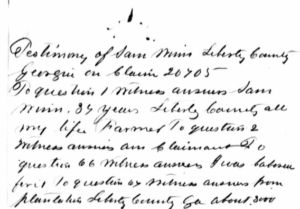 Testimony of Sam Winn Liberty County
Georgia on Claim 20705
To question 1 Witness answers Sam
Winn. 34 years Liberty County all
my life Farmer To question 2
Witness answers am Claimant To
question 66 Witness answers I was laborer
To question 67 Witness answers from
plantation Liberty County Ga about 3000